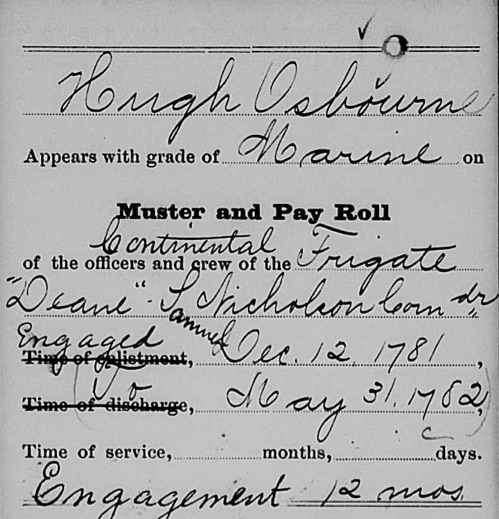 Hugh Osbourne
Appears with grade of Marine on
Muster and Pay Roll
Continental
of the officers and crew of the Frigate
"Deane" - Samuel Nicholson Comdr"
Engaged
Time of enlistment, Dec. 12, 1781,
To
Time of discharge, (May 31, 1782),
Time of service, months, days.
Engagement 12 mos